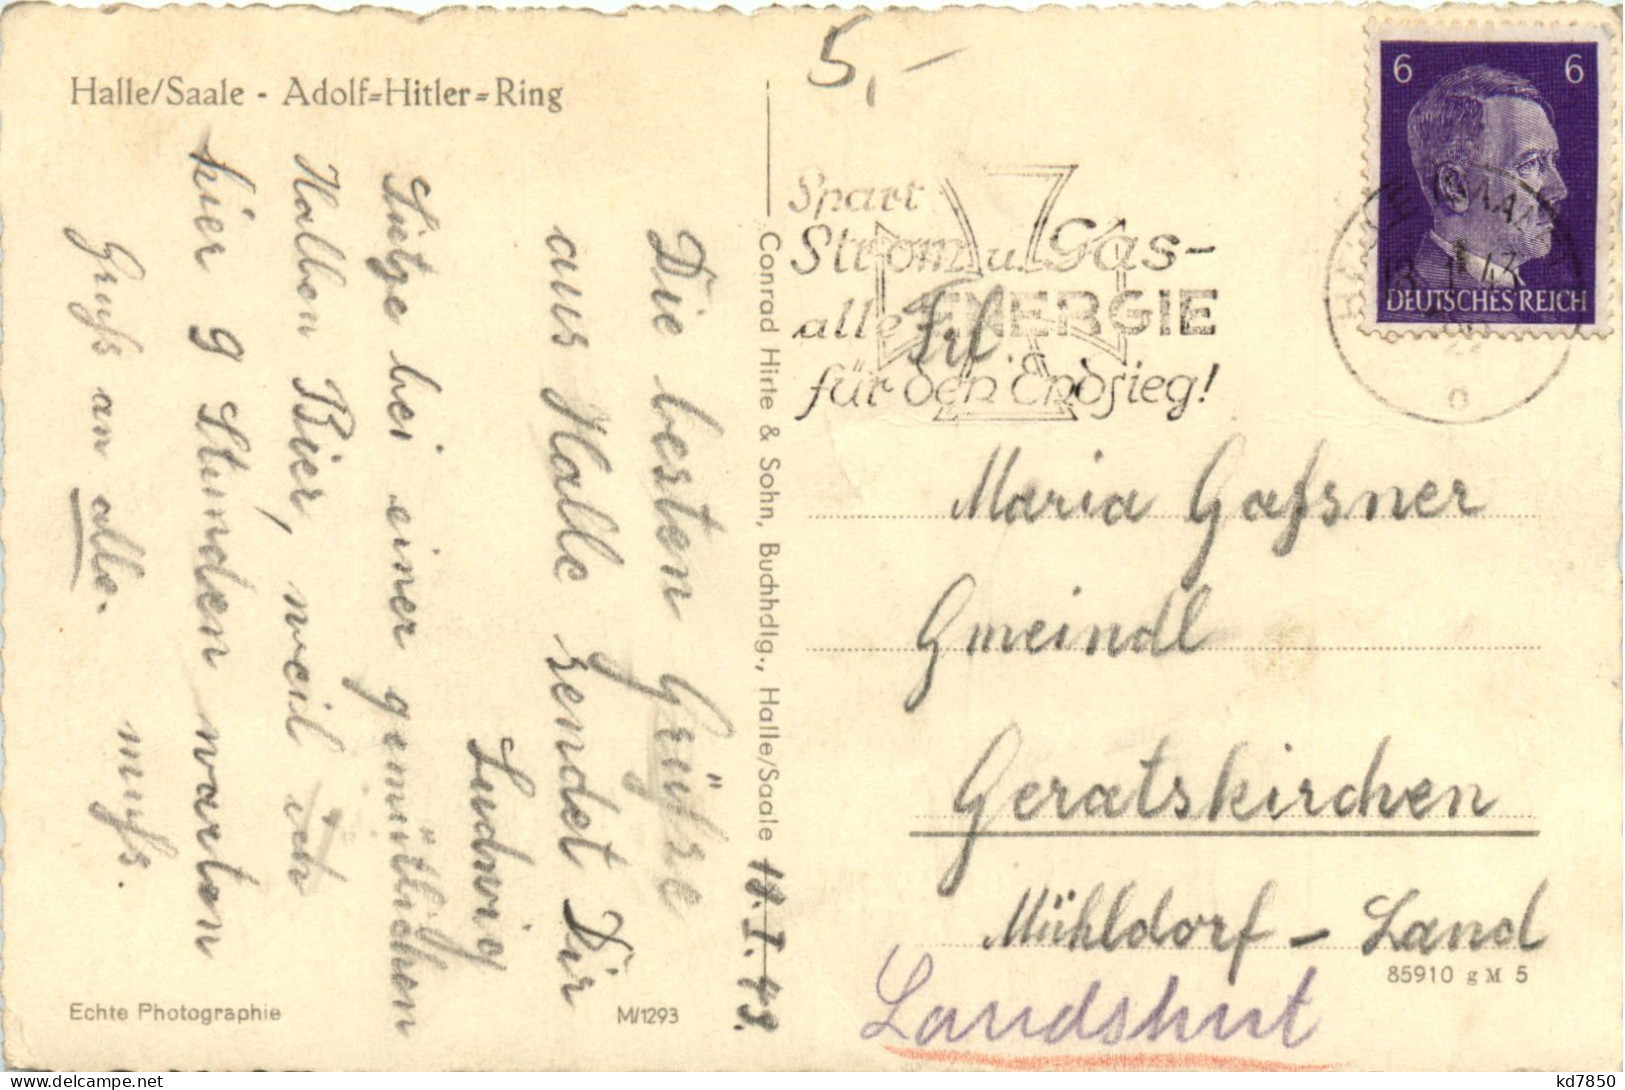 Halle/Saale - Adolf=Hitler=Ring
5,-
6 6
DEUTSCHES REICH
HALLE (SAALE)
43
Spart
Strom u. Gas-
alle ENERGIE
für den Endsieg!
18.I.43.
Die besten Grüsse
aus Halle sendet Dir
Ludwig
Sietze bei einer gemütlichen
Halben Bier, weil ich
hier 9 Stunden warten
muss.
Gruss an alle.
Conrad Hirte & Sohn, Buchhdlg., Halle/Saale
Frl.
Maria Gassner
Gmeindl
Geratskirchen
Mühldorf - Land
Landshut
85910 g M 5
Echte Photographie
M/1293
kd7850